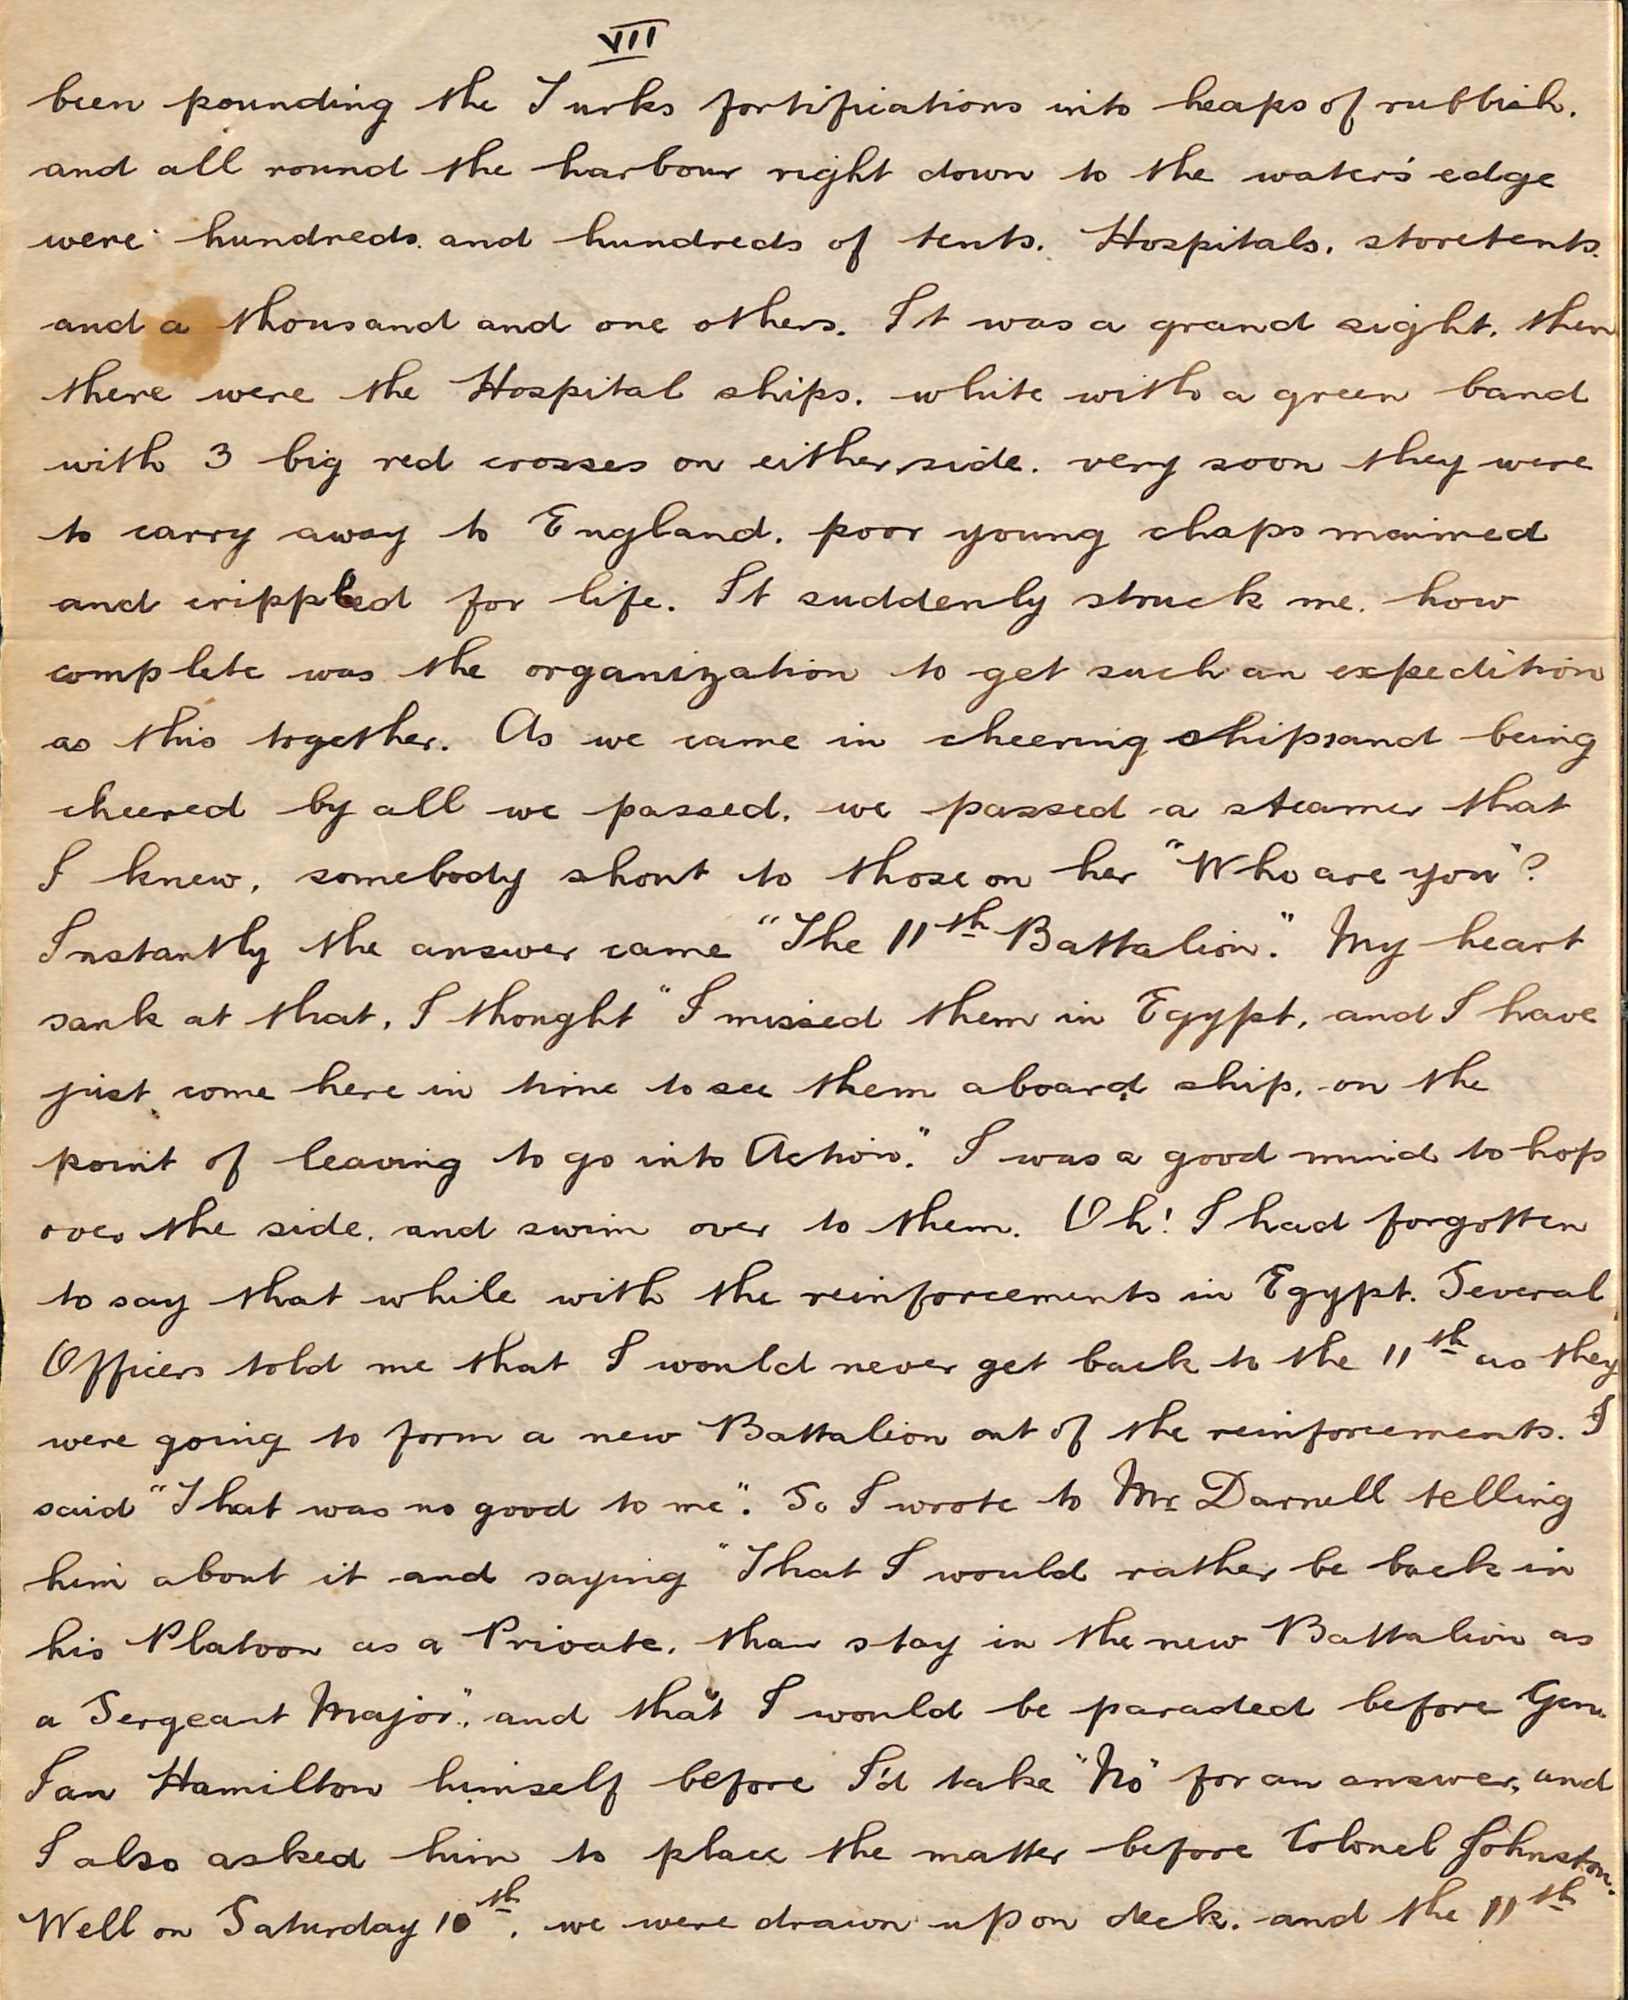 VII
been pounding the Turks fortifications into heaps of rubbish.
and all round the harbour right down to the water's edge
were hundreds. and hundreds of tents. Hospitals. storetents.
and a thousand and one others. It was a grand sight. then
there were the Hospital ships. white with a green band
with 3 big red crosses on either side. very soon they were
to carry away to England. poor young chaps maimed
and crippled for life. It suddenly struck me. how
complete was the organization to get such an expedition
as this together. As we came in cheering ships and being
cheered by all we passed. we passed a steamer that
I knew, somebody shout to those on her "Who are you"?
Instantly the answer came "The 11th Battalion." My heart
sank at that, I thought "I missed them in Egypt, and I have
just come here in time to see them aboard ship, on the
point of leaving to go into Action." I was a good mind to hop
over the side. and swim over to them. Oh! I had forgotten
to say that while with the reinforcements in Egypt. Several
Officers told me that I would never get back to the 11th as they
were going to form a new Battalion out of the reinforcements. I
said "That was no good to me". So I wrote to Mr Darnell telling
him about it and saying "That I would rather be back in
his Platoon as a Private. than stay in the new Battalion as
a Sergeant Major", and that I would be paraded before Gen.
Ian Hamilton himself before I'd take "No" for an answer, and
I also asked him to place the matter before Colonel Johnston.
Well on Saturday 10th, we were drawn up on deck. and the 11th